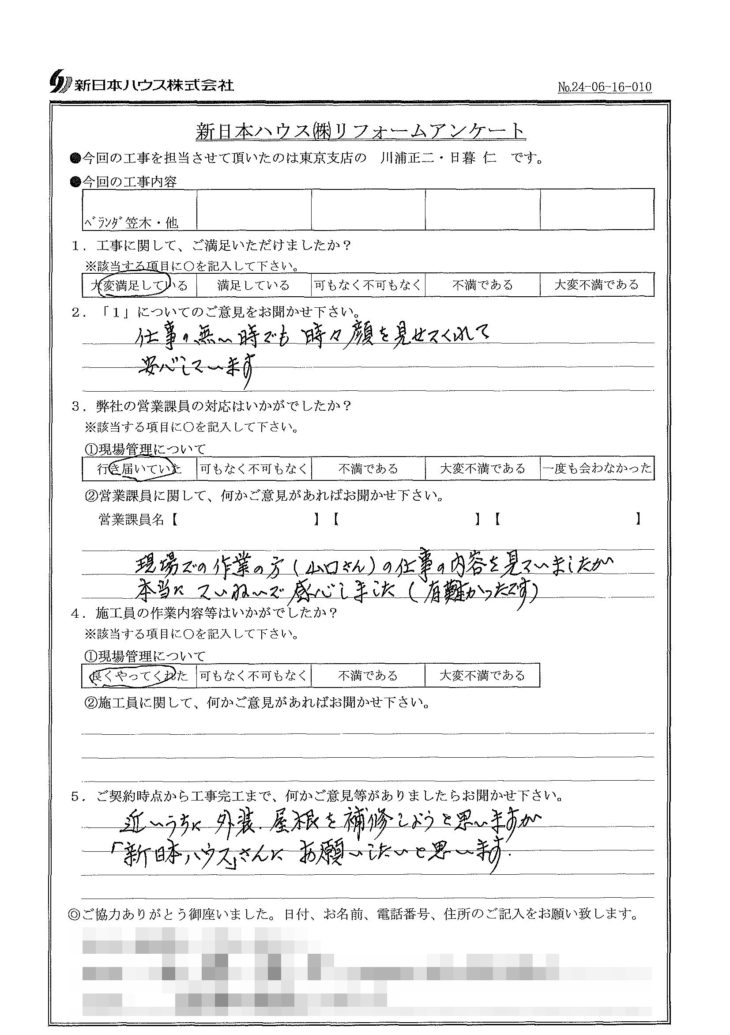 新日本ハウス株式会社
№24-06-16-010
新日本ハウス㈱リフォームアンケート
●今回の工事を担当させて頂いたのは東京支店の 川浦正二・日暮 仁 です。
●今回の工事内容
ﾍﾞﾗﾝﾀﾞ笠木・他
1．工事に関して、ご満足いただけましたか？
※該当する項目に○を記入して下さい。
大変満足している 満足している 可もなく不可もなく 不満である 大変不満である
2．「1」についてのご意見をお聞かせ下さい。
仕事の無い時でも 時々顔を見せてくれて
安心しています
3．弊社の営業課員の対応はいかがでしたか？
※該当する項目に○を記入して下さい。
①現場管理について
行き届いていた 可もなく不可もなく 不満である 大変不満である 一度も会わなかった
②営業課員に関して、何かご意見があればお聞かせ下さい。
営業課員名【 】【 】【 】
現場での作業の方（山口さん）の仕事の内容を見ていましたが
本当に ていねいで感心しました（有難かったです）
4．施工員の作業内容等はいかがでしたか？
※該当する項目に○を記入して下さい。
①現場管理について
良くやってくれた 可もなく不可もなく 不満である 大変不満である
②施工員に関して、何かご意見があればお聞かせ下さい。
5．ご契約時点から工事完工まで、何かご意見等がありましたらお聞かせ下さい。
近いうちに 外装、屋根を補修しようと思いますが
「新日本ハウス」さんに お願いしたいと思います.
◎ご協力ありがとう御座いました。日付、お名前、電話番号、住所のご記入をお願い致します。